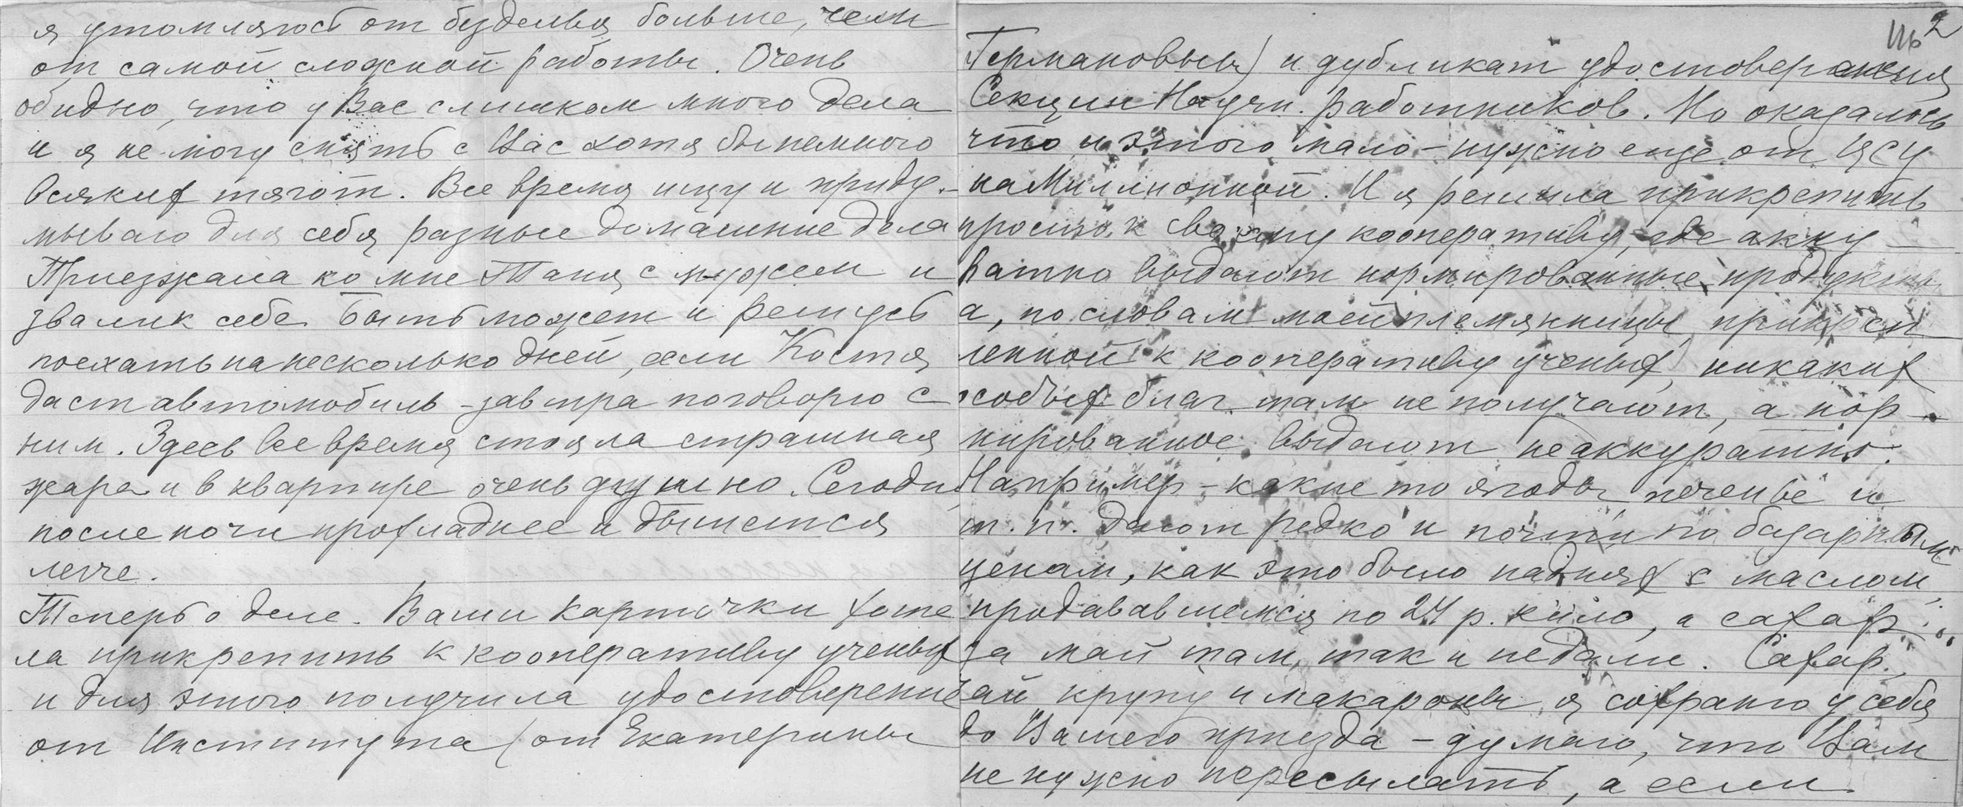 я утомляюсь от безделья больше, чем
от самой сложной работы. Очень
обидно, что у Вас слишком много дела
и я не могу снять с Вас хотя бы немного
всяких тягот. Все время ищу и приду-
мываю для себя разные домашние дела
Приезжала ко мне Таня с мужем и
звали к себе. Быть может и решусь
поехать на несколько дней, если Костя
даст автомобиль - завтра поговорю с
ним. Здесь все время стояла страшная
жара и в квартире очень душно. Сегодня
после ночи прохладнее и дышется
легче.
Теперь о деле. Ваши карточки хоте
ла прикрепить к кооперативу ученых
и для этого получила удостоверение
от Института (от Екатерины
2
Германовны) и дубликат удостоверения
Секции Научн. работников. Но оказалось
что и этого мало - нужно еще от ЦСУ
на Миллионной. И я решила прикрепить
просто к своему кооперативу, где акку-
ратно выдают нормированные продукты
а, по словам моей племянницы, прикреп
ленной к кооперативу ученых, никаких
особых благ там не получают, а нор-
мированное выдают неаккуратно.
Например - какие то ягоды, печенье и
т.п. дают редко и почти по базарным
ценам, как это было на днях с маслом,
продававшемся по 24 р. кило, а сахар
за май там так и не дали. Сахар,
чай крупу и макароны я сохраню у себя
до Вашего приезда - думаю, что Вам
не нужно пересылать, а если